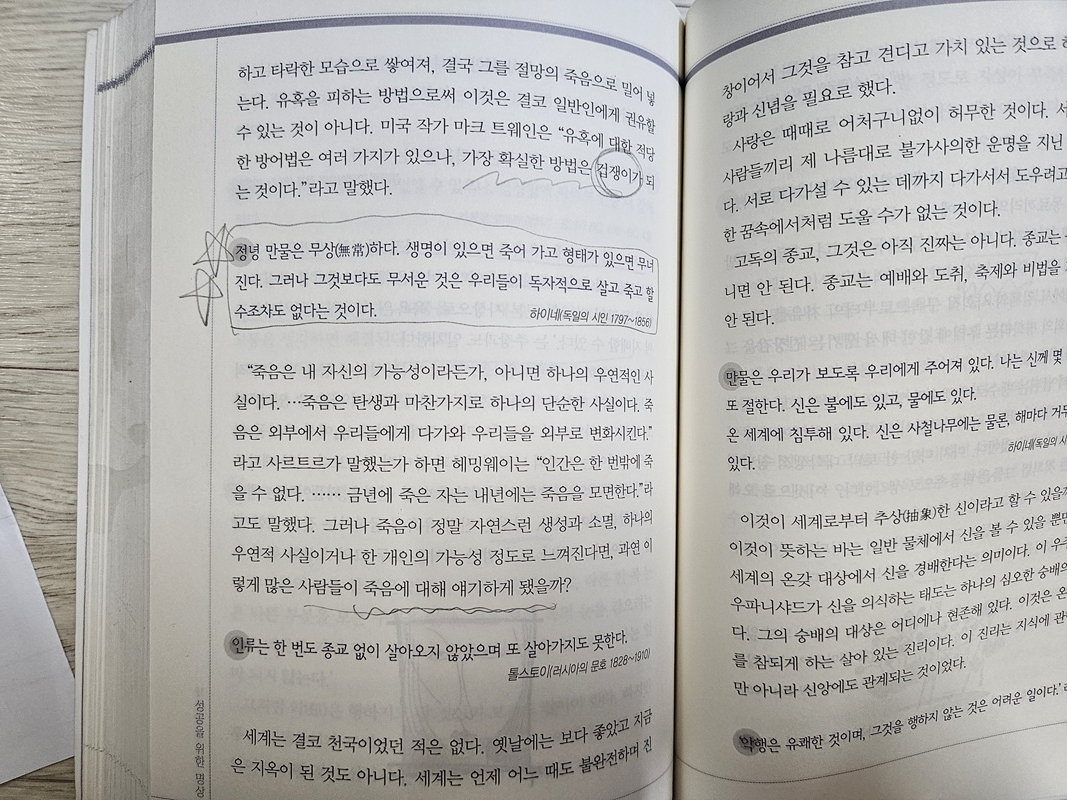 하고 타락한 모습으로 쌓여져, 결국 그를 절망의 죽음으로 밀어 넣
는다. 유혹을 피하는 방법으로써 이것은 결코 일반인에게 권유할
수 있는 것이 아니다. 미국 작가 마크 트웨인은 “유혹에 대한 적당
한 방어법은 여러 가지가 있으나, 가장 확실한 방법은 겁쟁이가 되
는 것이다.”라고 말했다.
정녕 만물은 무상(無常)하다. 생명이 있으면 죽어 가고 형태가 있으면 무너
진다. 그러나 그것보다도 무서운 것은 우리들이 독자적으로 살고 죽고 할
수조차도 없다는 것이다.
하이네(독일의 시인 1797~1856)
“죽음은 내 자신의 가능성이라든가, 아니면 하나의 우연적인 사
실이다. …죽음은 탄생과 마찬가지로 하나의 단순한 사실이다. 죽
음은 외부에서 우리들에게 다가와 우리들을 외부로 변화시킨다.”
라고 사르트르가 말했는가 하면 헤밍웨이는 “인간은 한 번밖에 죽
을 수 없다. …… 금년에 죽은 자는 내년에는 죽음을 모면한다.”라
고도 말했다. 그러나 죽음이 정말 자연스런 생성과 소멸, 하나의
우연적 사실이거나 한 개인의 가능성 정도로 느껴진다면, 과연 이
렇게 많은 사람들이 죽음에 대해 얘기하게 됐을까?
인류는 한 번도 종교 없이 살아오지 않았으며 또 살아가지도 못한다.
톨스토이(러시아의 문호 1828~1910)
세계는 결코 천국이었던 적은 없다. 옛날에는 보다 좋았고 지금
은 지옥이 된 것도 아니다. 세계는 언제 어느 때도 불완전하며 진
성공을 위한 명상
창이어서 그것을 참고 견디고 가치 있는 것으로
랑과 신념을 필요로 했다.
사랑은 때때로 어처구니없이 허무한 것이다.
사람들끼리 제 나름대로 불가사의한 운명을 지닌
다. 서로 다가설 수 있는 데까지 다가서서 도우려고
한 꿈속에서처럼 도울 수가 없는 것이다.
고독의 종교, 그것은 아직 진짜는 아니다. 종교는
니면 안 된다. 종교는 예배와 도취, 축제와 비법을
안 된다.
만물은 우리가 보도록 우리에게 주어져 있다. 나는 신께 몇
또 절한다. 신은 불에도 있고, 물에도 있다.
온 세계에 침투해 있다. 신은 사철나무에는 물론, 해마다 거두
있다.
하이네(독일의 시
이것이 세계로부터 추상(抽象)한 신이라고 할 수 있을까
이것이 뜻하는 바는 일반 물체에서 신을 볼 수 있을 뿐만
세계의 온갖 대상에서 신을 경배한다는 의미이다. 이 우주
우파니샤드가 신을 의식하는 태도는 하나의 심오한 숭배의
다. 그의 숭배의 대상은 어디에나 현존해 있다. 이것은 온
를 참되게 하는 살아 있는 진리이다. 이 진리는 지식에 관
만 아니라 신앙에도 관계되는 것이었다.
악행은 유쾌한 것이며, 그것을 행하지 않는 것은 어려운 일이다.’